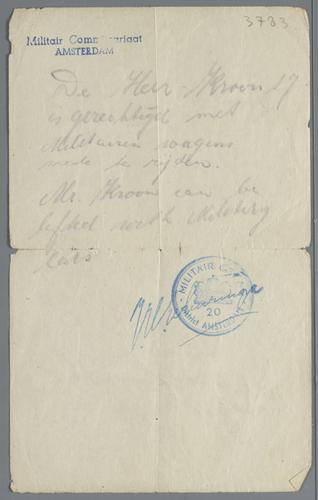 3783
Militair Commissariaat
AMSTERDAM
De Heer Kroon
is gerechtigd met
Militairen wagens
mede te rijden.
Mr. Kroon can be
lifted with Military
cars
MILITAIR
20
District AMSTERDAM